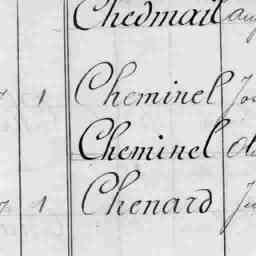 Chedmail
1 Cheminel
Cheminel
1 Chenard